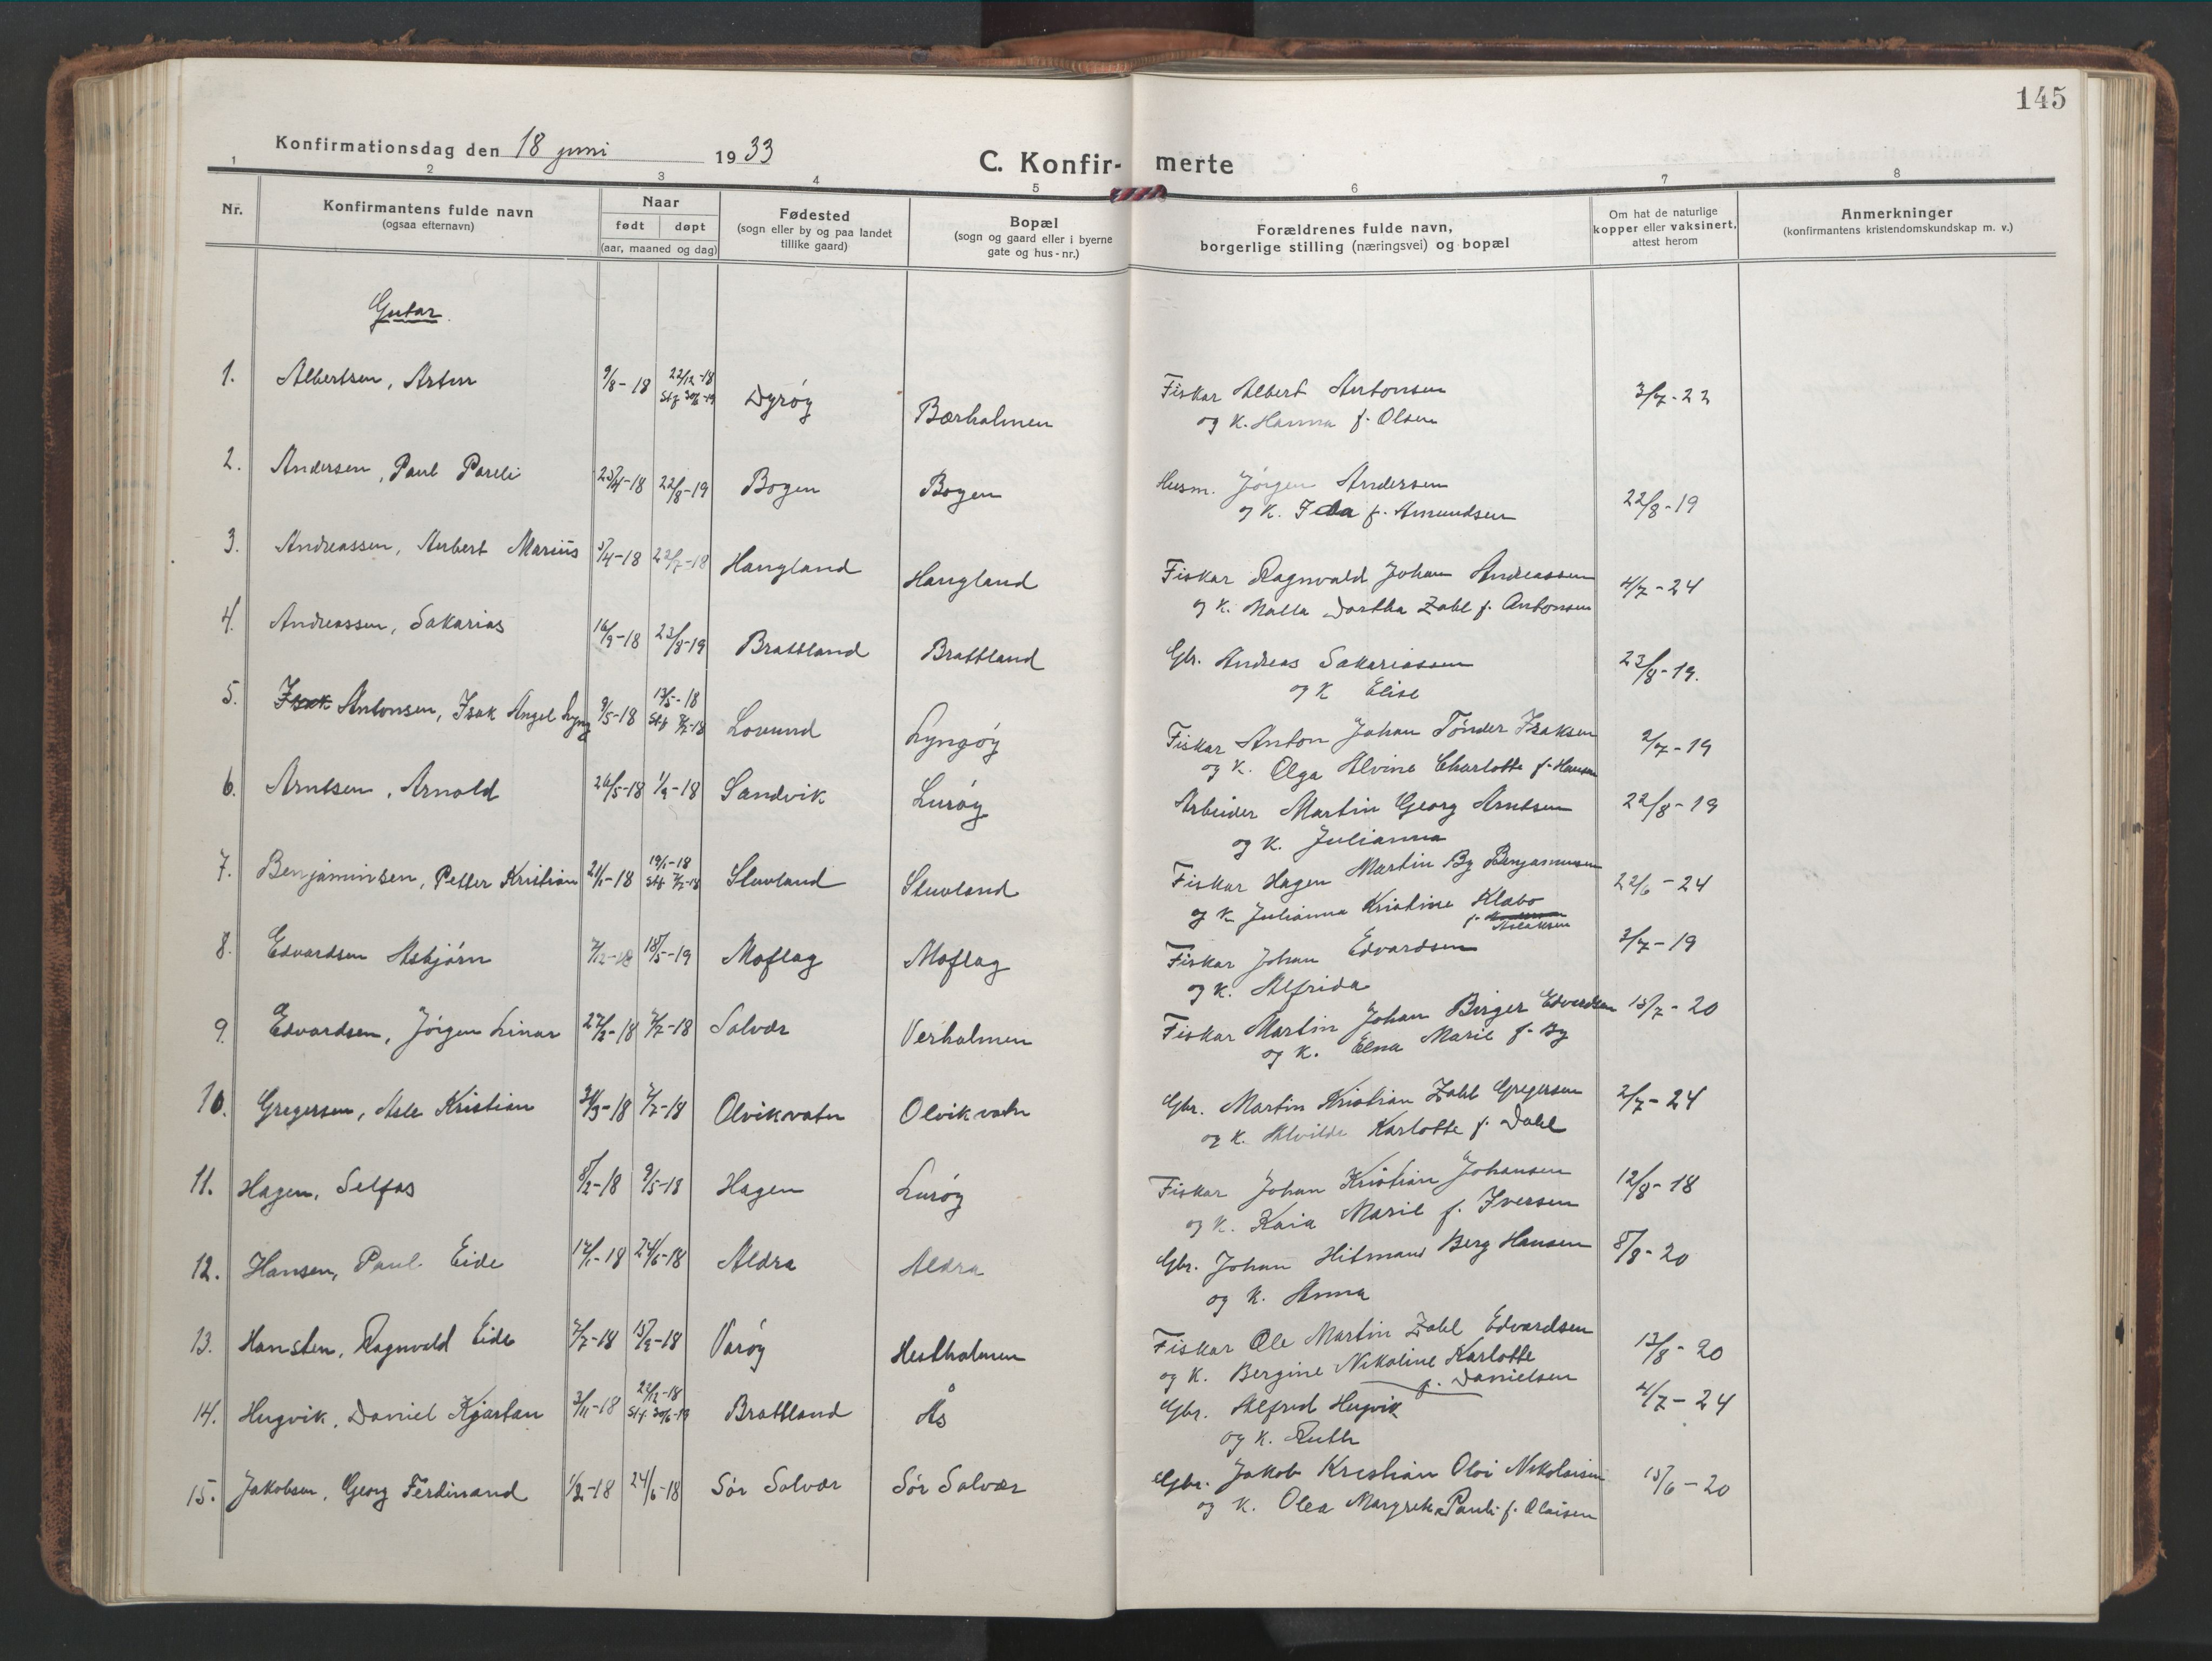 145
Konfirmationsdag den 18 juni 1933
C. Konfir- merte
1 2 3 4 5 6 7 8
Nr.
Konfirmantens fulde navn
(ogsaa efternavn)
Naar
født døpt
(aar, maaned og dag)
Fødested
(sogn eller by og paa landet
tillike gaard)
Bopæl
(sogn og gaard eller i byerne
gate og hus-nr.)
Forældrenes fulde navn,
borgerlige stilling (næringsvei) og bopæl
Om hat de naturlige
kopper eller vaksinert,
attest herom
Anmerkninger
(konfirmantens kristendomskundskap m. v.)
Gutar.
1. Albertsen, Artur 9/8-18 22/12-18 Dyrøy Barholmen Fiskar Albert Antonsen 3/7-22
stf 30/6-19
og K. Hanna f. Olsen
2. Andersen, Paul Pareli 23/4-18 22/8-19 Bogen Bogen Husm. Jørgen Andersen 22/8-19
og K. Ida f. Amundsen
3. Andreassen, Anbert Marius 5/4-18 22/7-18 Haugland Haugland Fiskar Ragnvald Johan Andreassen 4/7-24
og K. Malla Dortha Zahl f. Antonsen
4. Andreassen, Sakarias 16/9-18 23/8-19 Brattland Brattland Gbr. Andreas Sakariassen 23/8-19.
og K Elise
5. Isak Antonsen, Isak Angel Lyng 9/5-18 17/5-18 Lovund Lyngøy Fiskar Anton Johan Tønder Isaksen 2/7-19
stf 7/7-18
og K. Olga Alvine Charlotte f. Hansen
6. Arntsen, Arnold 26/5-18 1/9-18 Sandvik Lurøy Arbeider Martin Georg Arntsen 22/8-19
og K. Julianna
7. Benjaminsen, Petter Kristian 21/1-18 19/1-18 Stuvland Stuvland Fiskar Hagen Martin By Benjaminsen 22/6-24
stf 7/7-18
og K Julianna Kristine Klabo
f.
8. Edvardsen Asbjørn 7/12-18 18/5-19 Moflag Moflag Fiskar Johan Edvardsen 3/7-19
og K. Alfrida
9. Edvardsen, Jørgen Linar 27/3-18 7/7-18 Solvær Verholmen Fiskar Martin Johan Birger Edvardsen 15/7-20
og K. Elna Marie f. By
10. Gregersen, Asle Kristian 30/3-18 7/7-18 Olvikvatn Olvikvatn Gbr. Martin Kristian Zahl Gregersen 2/7-24
og K. Alvilde Karlotte f. Dahl
11. Hagen, Selfas 8/2-18 9/5-18 Hagen Lurøy Fiskar Johan Kristian Johansen 12/8-18
og K. Kaia Marie f. Iversen
12. Hansen, Paul Eide 17/1-18 24/6-18 Aldra Aldra Gbr. Johan Hitmand Berg Hansen 8/8-20
og K. Anna
13. Hansten, Ragnvald Eide 7/7-18 15/9-18 Varøy Hestholmen Fiskar Ole Martin Zahl Edvardsen 13/8-20
og K. Bergine Nikoline Karlotte
f. Danielsen
14. Hugvik, Daniel Kjartan 3/11-18 22/12-18 Brattland Ås Gbr. Alfred Hugvik 4/7-24
stf. 30/6-19
og K. Ruth
15. Jakobsen, Georg Ferdinand 1/2-18 24/6-18 Sør Solvær Sør Solvær Gbr. Jakob Kristian Oloi Nikolaisen 15/6-20
og K. Olea Margrete Pauli f. Olaisen